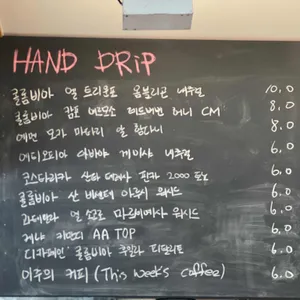 HAND DRIP
콜롬비아 엘 트리운포 옴블리곤 내추럴 10.0
콜롬비아 캄포 에르모소 레드버번 허니 CM 8.0
예멘 모카 마타리 알 함다니 8.0
에티오피아 아바야 게이샤 내추럴 6.0
코스타리카 산타 테레사 2000 6.0
콜롬비아 산 비센테 아구시 워시드 6.0
과테말라 엘 소코로 마라카에사 워시드 6.0
케냐 키안지 AA TOP 6.0
디카페인 콜롬비아 후일라 디칼리토 6.0
이주의 커피 (This week's coffee) 6.0